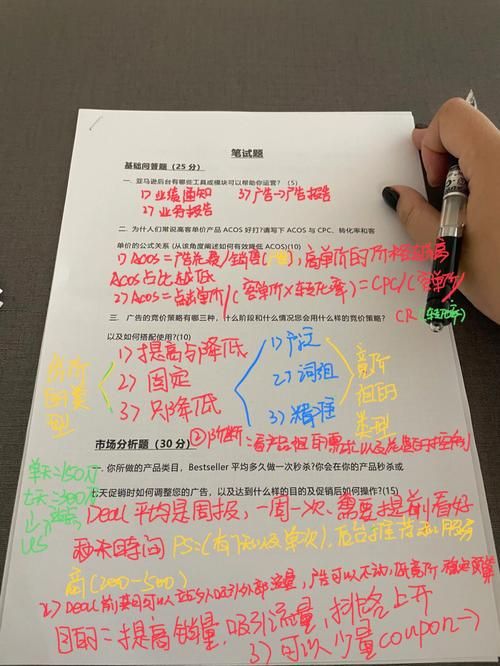 笔试题
基础问答题（25 分）
一、亚马逊后台有哪些工具或模块可以帮助你运营？（5）
1）业绩通知 3）广告→广告报告
2）业务报告
二、为什人们常说高客单价产品 ACOS 好打?请写下 ACOS 与 CPC、转化率和客
单价的公式关系 (从该角度阐述如何有效降低 ACOS)(10)
1）ACOS = 广告花费/销售，高单价的
ACOS占比越低
2）ACOS = 点击单价/（客单价×转化率）= CPC/（客单价/
CR 转化率）
三、广告的竞价策略有哪三种，什么阶段和什么情况您会用什么样的竞价策略？
以及如何搭配使用?(10)
1）提高与降低 1）广泛
2）固定 2）词组
3）只降低 3）精准
竞价
类型
②阶断：看产品
市场分析题（30 分）
一、你所做的产品类目，Bestseller 平均多久做一次秒杀？你会在你的产品秒杀或
七天促销时如何调整您的广告，以及达到什么样的目的及促销后如何操作?(15)
单天=150刀
七天=300刀
US
Deal 平均是周报，一周一次、需要提前看好
秒杀时间 PS:（有7天以及单次），后台推荐和服务
商（200-500）
2）Deal 前期可以站外吸引外部流量，广告可以不动，
目的=提高销量，吸引流量，排名上升
3）可以少量coupon